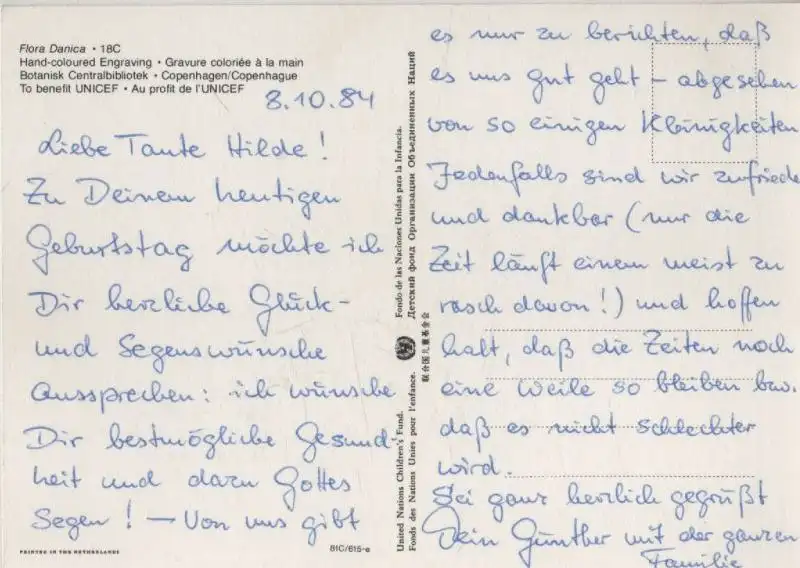 Flora Danica • 18C
Hand-coloured Engraving • Gravure coloriée à la main
Botanisk Centralbibliotek • Copenhagen/Copenhague
To benefit UNICEF • Au profit de l'UNICEF
8.10.84
Liebe Tante Hilde!
Zu Deinem heutigen
Geburtstag möchte ich
Dir herzliche Glück-
und Segenswünsche
aussprechen: ich wünsche
Dir bestmögliche Gesund-
heit und dazu Gottes
Segen! — Von uns gibt
PRINTED IN THE NETHERLANDS
81C/615-e
United Nations Children's Fund.
Fonds des Nations Unies pour l'enfance.
Fondo de las Naciones Unidas para la Infancia.
Детский фонд Организации Объединенных Наций
联合国儿童基金会
es nur zu berichten, daß
es uns gut geht – abgesehen
von so einigen Kleinigkeiten
Jedenfalls sind wir zufriede
und dankbar (nur die
Zeit läuft einem meist zu
rasch davon!) und hoffen
halt, daß die Zeiten noch
eine Weile so bleiben bzw.
daß es nicht schlechter
wird.
Sei ganz herzlich gegrüßt
Dein Günther mit der ganzen
Familie